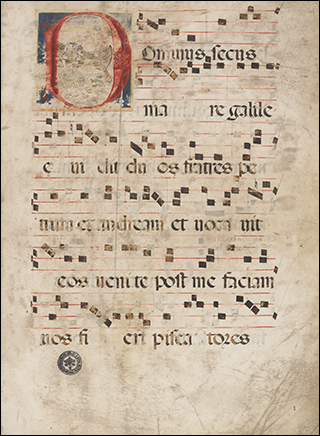 Dominus secus
ma re galile
e vi dit du os fratres pe
trum et andream et voca vit
eos veni te post me faciam
vos fi eri pisca tores